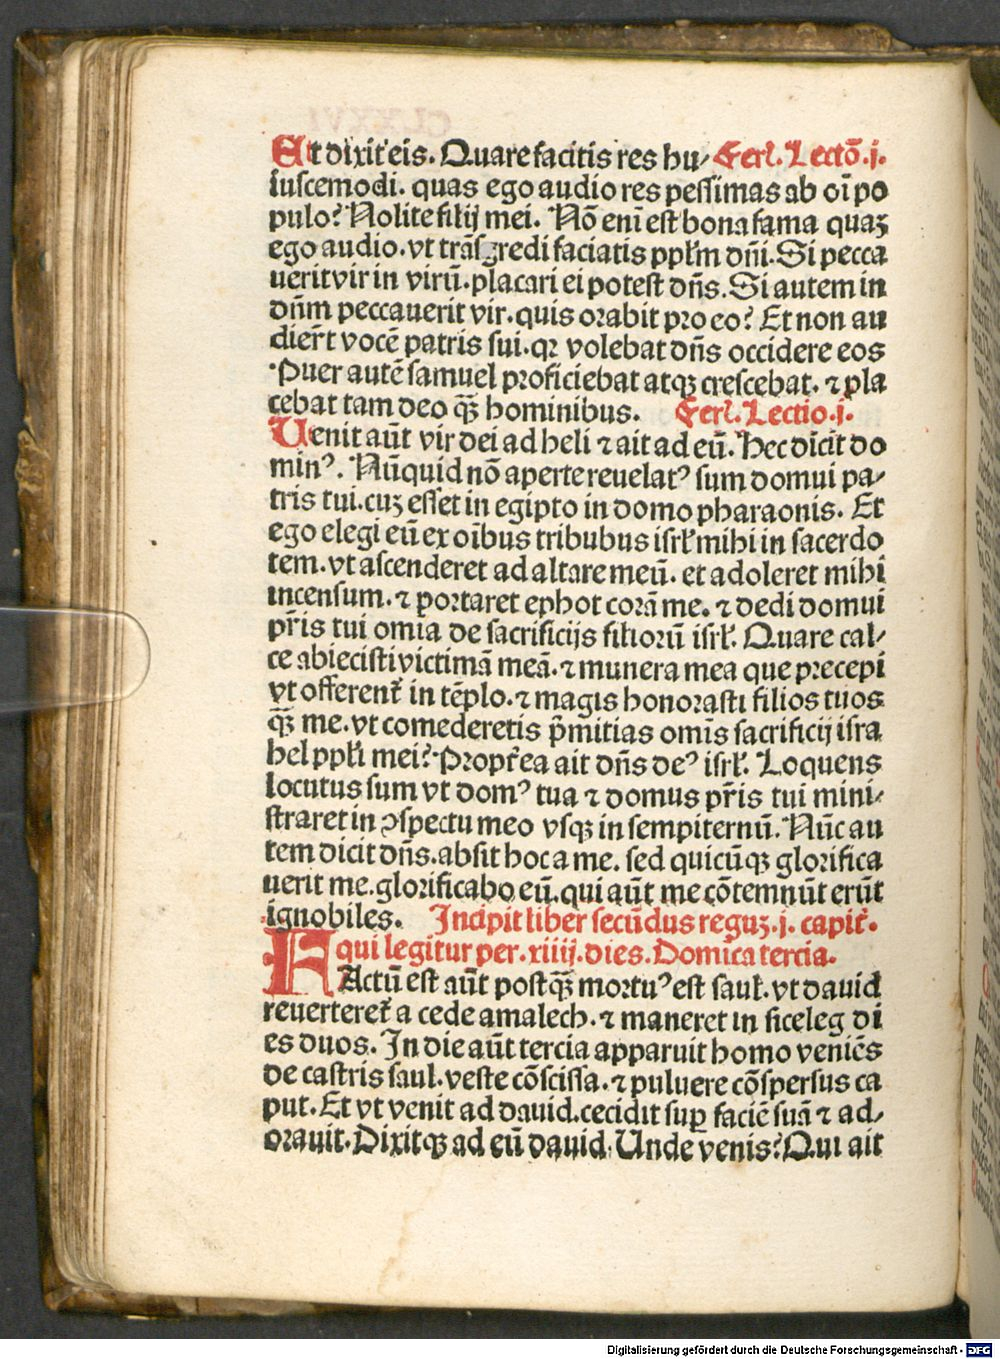 Et dixit eis. Quare facitis res hu⸗ Ferľ. Lectō.j.
iuscemodi. quas ego audio res pessimas ab oī po
pulo? Nolite filij mei. Nō enī est bona fama quaꝫ
ego audio. vt trāsgredi faciatis ppłm dn̄i. Si pecca
uerit vir in virū. placari ei potest dn̄s. Si autem in
dn̄m peccauerit vir. quis orabit pro eo? Et non au
dier̄t vocē patris sui. qꝛ volebat dn̄s occidere eos
Puer autē samuel proficiebat atqꝫ crescebat. ⁊ pla
cebat tam deo qꝫ̄ hominibus. Ferľ. Lectio.j.
Uenit aūt vir dei ad heli ⁊ ait ad eū. Hec dicit do
minꝰ. Nūquid nō aperte reuelatꝰ sum domui pa⸗
tris tui. cuꝫ esset in egipto in domo pharaonis. Et
ego elegi eū ex oībus tribubus isrł mihi in sacerdo
tem. vt ascenderet ad altare meū. et adoleret mihi
incensum. ⁊ portaret ephot corā me. ⁊ dedi domui
pr̄is tui omia de sacrificijs filiorū isrł. Quare cal⸗
ce abiecisti victimā meā. ⁊ munera mea que precepi
vt offerent᷑ in tēplo. ⁊ magis honorasti filios tuos
qꝫ̄ me. vt comederetis p̄mitias omīs sacrificij isra
hel ppłi mei? Propt᷑ea ait dn̄s deꝰ isrł. Loquens
locutus sum vt domꝰ tua ⁊ domus pr̄is tui mini⸗
straret in ꝯspectu meo vsqꝫ in sempiternū. Nūc au
tem dicit dn̄s. absit hoc a me. sed quicūqꝫ glorifica
uerit me. glorificabo eū. qui aūt me cōtemnūt erūt
ignobiles. Incipit liber secūdus reguꝫ.j. capit᷑.
qui legitur per .xiiij. dies. Domica tercia.
FActū est aūt postqꝫ̄ mortuꝰ est saul. vt dauid
reuerteret᷑ a cede amalech. ⁊ maneret in siceleg di
es duos. In die aūt tercia apparuit homo veniēs
de castris saul. veste cōscissa. ⁊ puluere cōspersus ca
put. Et vt venit ad dauid. cecidit suꝑ faciē suā ⁊ ad⸗
orauit. Dixitqꝫ ad eū dauid. Unde venis? Qui ait
Digitalisierung gefördert durch die Deutsche Forschungsgemeinschaft - DFG